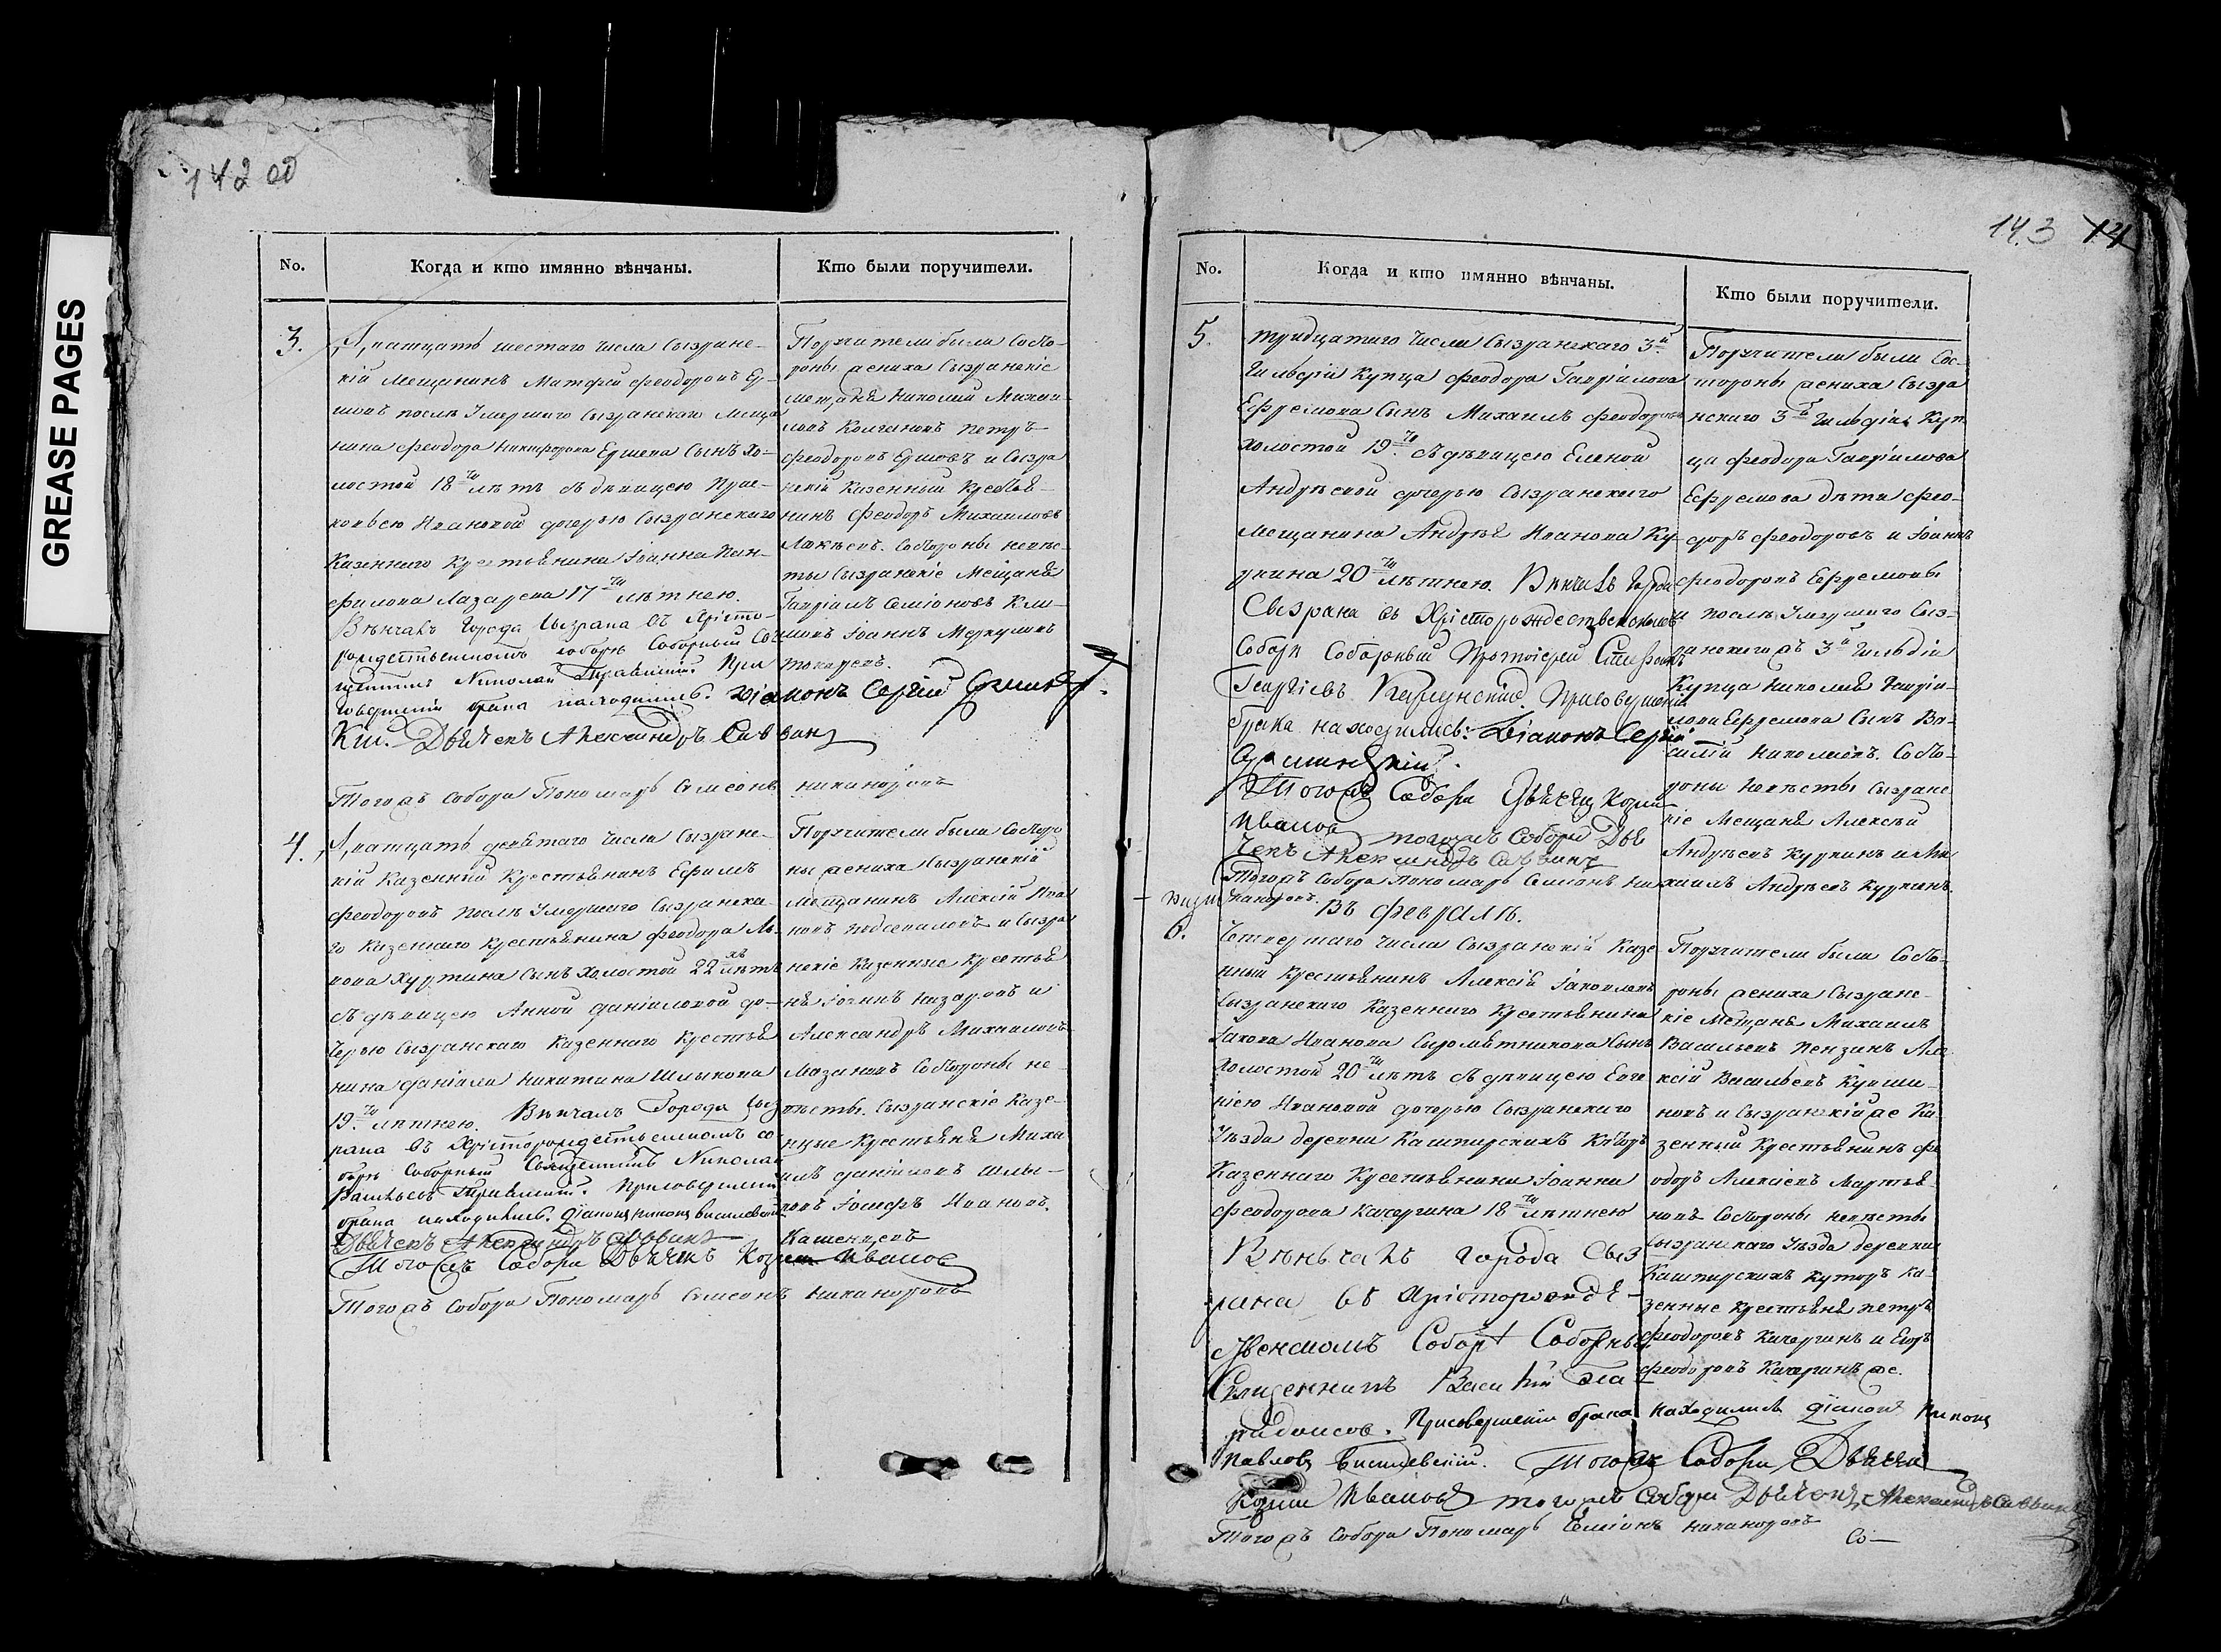 GREASE PAGES
142 об
No.
Когда и кто имянно вѣнчаны.
Кто были поручители.
3.
Дватцать шестаго числа Сызранс-
кій мещанинъ Матфей Феодоровъ Ер-
шовъ послѣ умершаго Сызранскаго меща
нина Феодора Никифорова Ершова сынъ хо-
лостой 18ти лѣтъ съ дѣвицею Прас-
ковьею Ивановой дочерью Сызранскаго
Казеннаго Крестьянина Іоанна Пан-
филова Лазарева 17ти лѣтнею.
Вѣнчалъ Города Сызрана въ Хрісто-
рождественскомъ соборѣ Соборный Свя
щенникъ Николай При
совершеніи брака находились. Діаконъ Сергій
кій. Дьячекъ Александръ Саввинъ
Тогожъ Собора Пономарь Симеонъ Никаноровъ
Поручители были состо-
роны жениха Сызранскіе
мещаня Николай Михаи-
ловъ Колчиновъ Петръ
Феодоровъ Ершовъ и Сызра
нскій Казенный Крестья-
нинъ Феодоръ Михаиловъ
состороны невѣс-
ты Сызранскіе Мещаня
Гавріилъ Семіоновъ Кли-
мовъ Іоаннъ Меркуловъ
Токаревъ.
4.
Дватцать девятаго числа Сызранс-
кій Казенный Крестьянинъ Ефимъ
Феодоровъ послѣ умершаго Сызранска-
го Казеннаго Крестьянина Феодора Ль-
вова Хуртина сынъ холостой 22хъ лѣтъ
съ дѣвицею Анной Даніиловой до-
черью Сызранскаго Казеннаго Крестья
нина Даніила Никитина Шлыкова
19ти лѣтнею. Вѣнчалъ Города Сыз
рана въ Хрісторождественскомъ со
борѣ Соборный Священникъ Николай
Васильевъ При совершеніи
брака находились. Діаконъ Никонъ
Дьячекъ Александръ Саввинъ
Тогожъ Собора Дьячекъ Козма Ивановъ
Тогожъ Собора Пономарь Симеонъ Никаноровъ
Поручители были состоро
ны жениха Сызранскій
Мещанинъ Алексій Ива
новъ Подсеваловъ и Сызра
нскіе Казенные Крестья
ня Іоаннъ Назаровъ и
Александръ Михаиловъ
Мазановъ состороны не-
вѣсты. Сызранскіе Казе-
нные Крестьяня Миха
илъ Даніиловъ Шлы-
ковъ Іосифъ Ивановъ.
Кашенцевъ
143 14
No.
Когда и кто имянно вѣнчаны.
Кто были поручители.
5.
Тридцатаго числа Сызранскаго 3й
Гильдіи Купца Феодора Гавріилова
Ефремова сынъ Михаилъ Феодоровъ
холостой 19ти съ дѣвицею Еленой
Андрѣевой дочерью Сызранскаго
мещанина Андрѣя Иванова Ку-
ркина 20ти лѣтнею. Вѣнчалъ Города
Сызрана въ Хрісторождественскомъ
Соборѣ Соборный Протоіерей Стефанъ
Георгіевъ При совершеніи
брака находились: Діаконъ Сергій
Тогожъ Собора Дьячекъ Козма
Ивановъ тогожъ Собора Дья
чекъ Александръ Саввинъ
Тогожъ Собора Пономарь Семіонъ Ни
каноровъ.
Поручители были сос-
тороны жениха Сызра
нскаго 3й Гильдіи Куп
ца Феодора Гавріилова
Ефремова дѣти Фео-
доръ Феодоровъ и Іоаннъ
Феодоровъ Ефремовы
и послѣ умершаго Сыз-
ранскагожъ 3й Гильдіи
Купца Николая Гаврі-
лова Ефремова сынъ Ва-
силій Николаевъ. Состо-
роны невѣсты Сызранс
кіе Мещаня Алексѣй
Андрѣевъ Куркинъ и Ми
хаилъ Андрѣевъ Куркинъ.
Въ Февралѣ.
6.
Четвертаго числа Сызранскій Казе-
нный Крестьянинъ Алексій Іаковлевъ
Сызранскаго Казеннаго Крестьянина
Іакова Иванова Сыромятникова сынъ
холостой 20ти лѣтъ съ дѣвицею Евге
ніею Ивановой дочерью Сызранскаго
Уѣзда деревни Кашпирскихъ Хуторъ
Казеннаго Крестьянина Іоанна
Феодорова Качергина 18ти лѣтнею
Вѣньчалъ города Сыз
рана въ Хрісторожде-
ственскомъ Соборѣ Соборный
Священникъ Василій
При совершеніи брака находились Діаконъ Никонъ
Павловъ Тогожъ Собора Дьячекъ
Козма Ивановъ тогожъ Собора Дьячекъ Александръ Саввинъ
Тогожъ Собора Пономарь Семіонъ Никаноровъ
Поручители были состо-
роны жениха Сызранс-
кіе мещаня Михаилъ
Васильевъ Пензинъ Але
ксій Васильевъ
новъ и Сызранскій же Ка-
зенный Крестьянинъ Фе
одоръ Алексіевъ Мартья-
новъ состороны невѣсты
Сызранскаго Уѣзда деревни
Кашпирскихъ Хуторъ Ка-
зенные Крестьяня Петръ
Феодоровъ Качергинъ и Егоръ
Феодоровъ Качергинъ же.
Со-